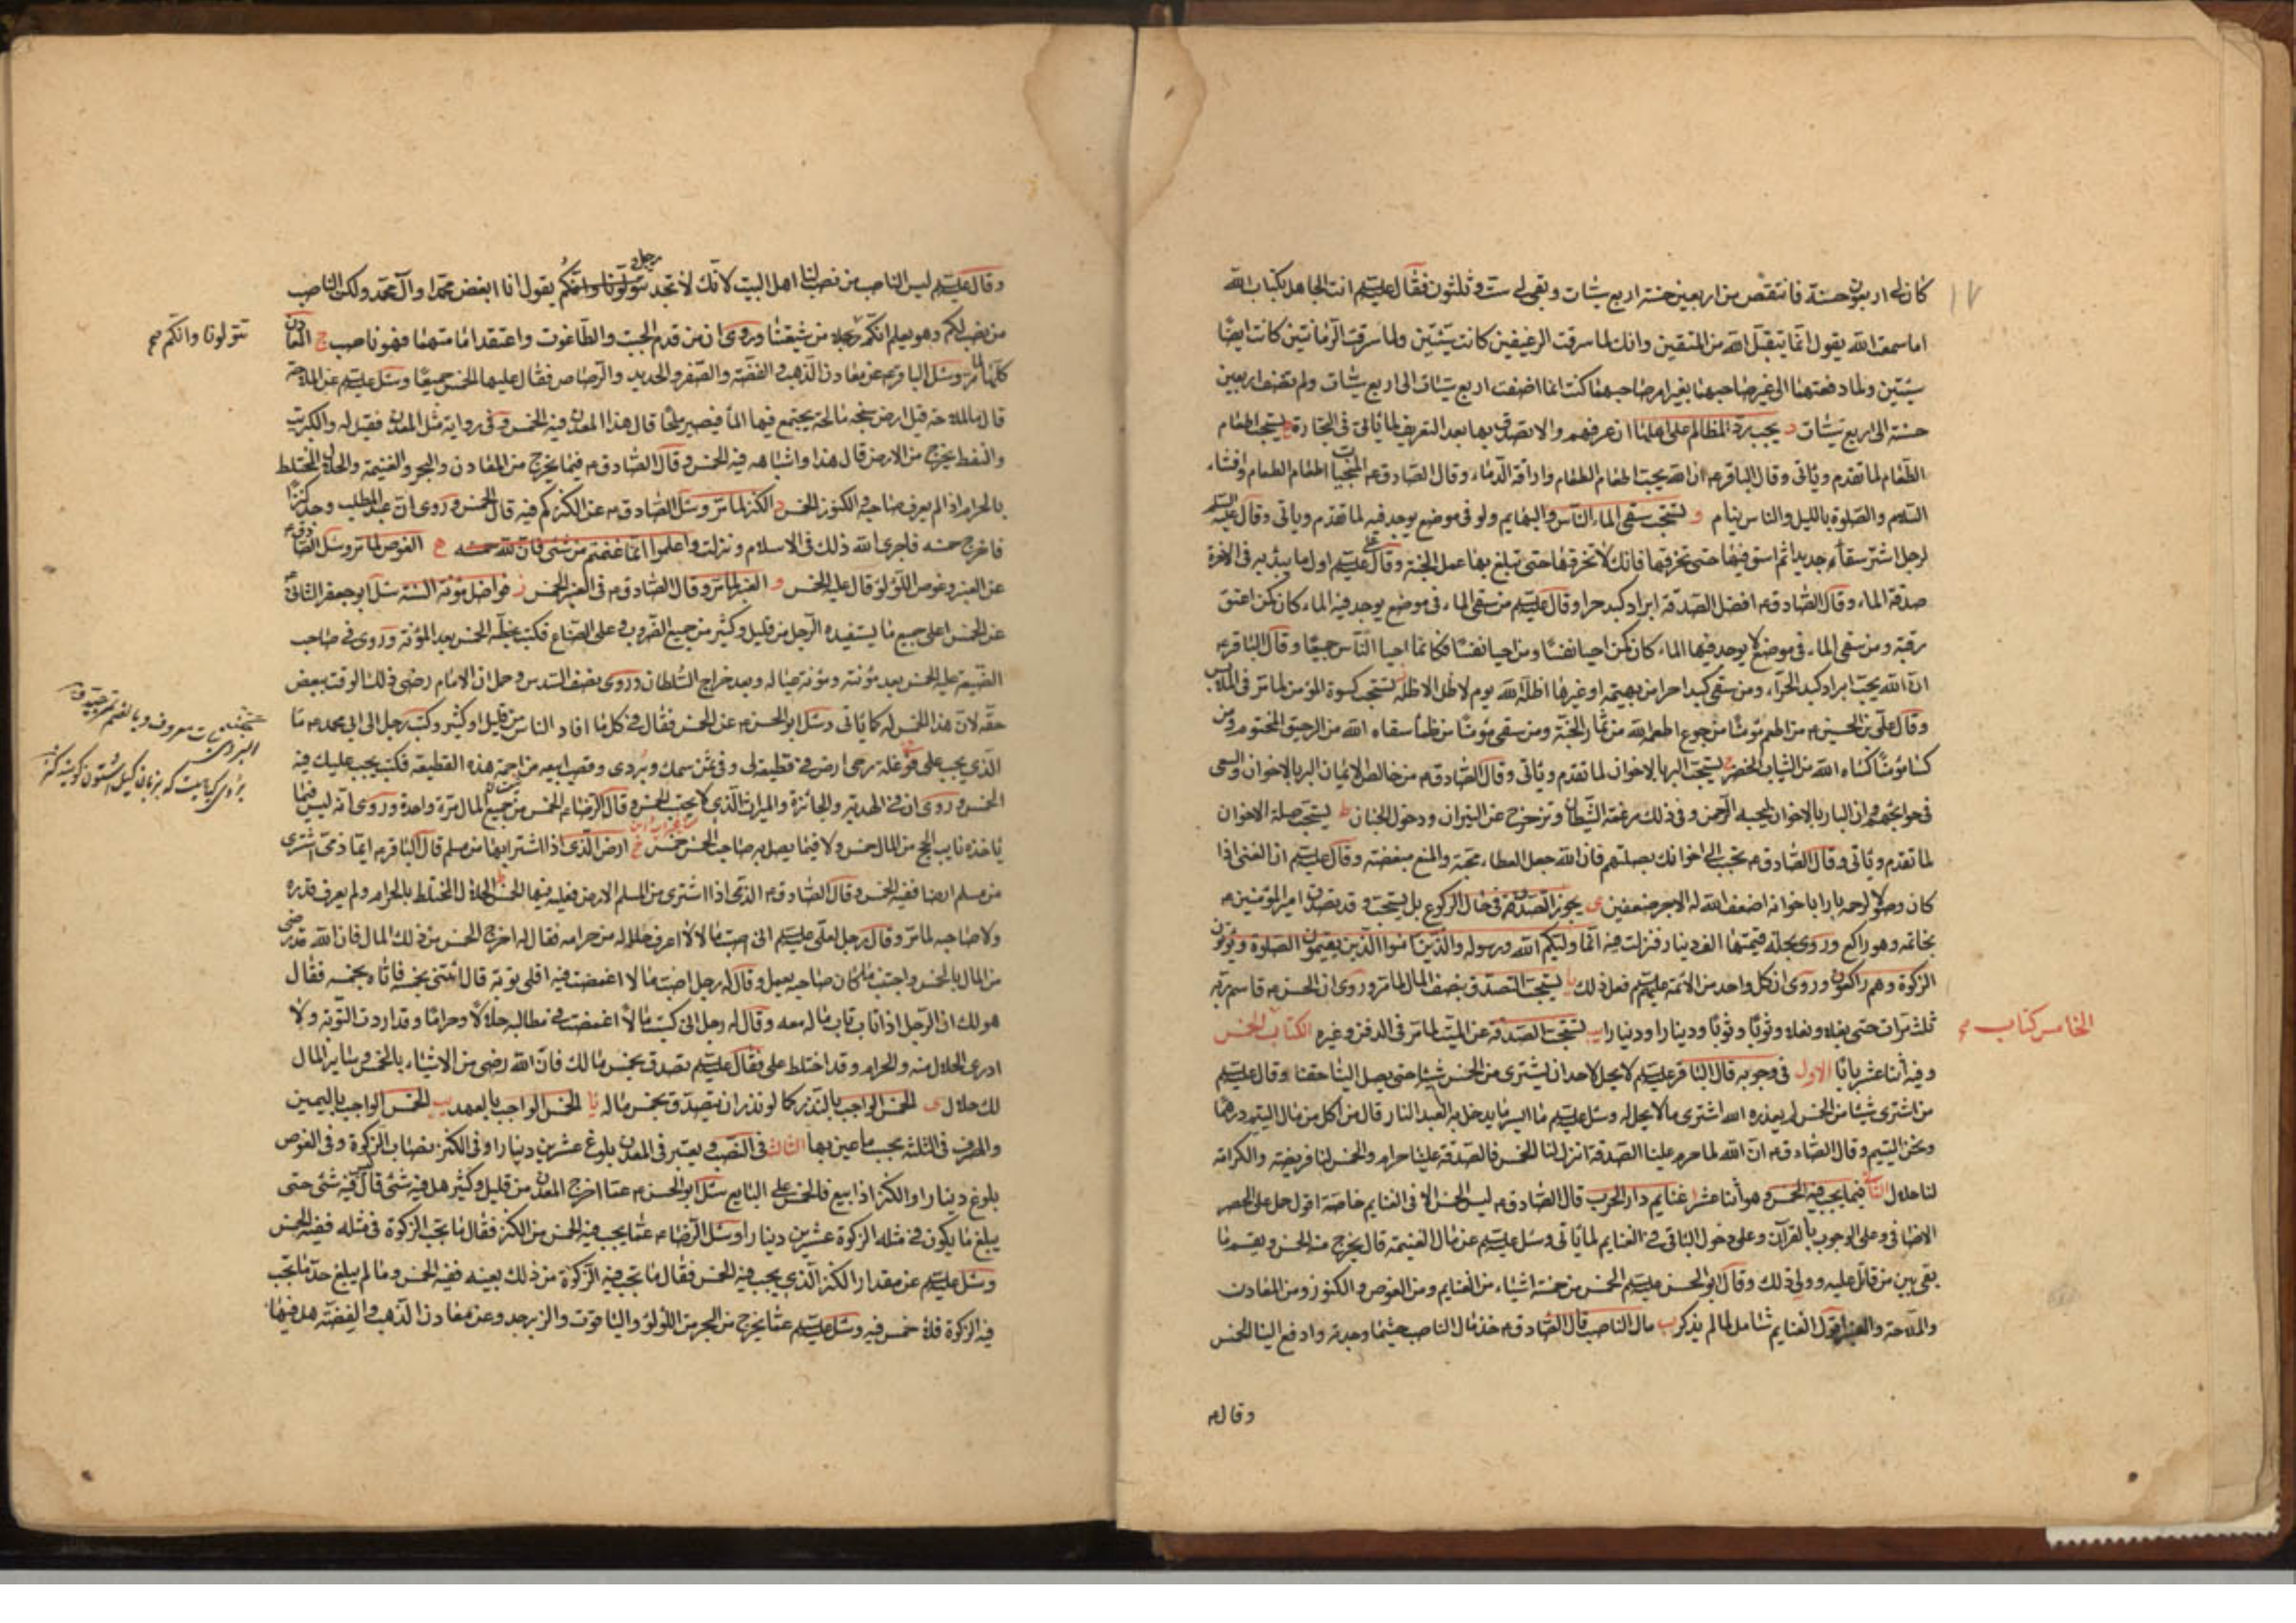 كان لى اربعون حسنة فانتقص من اربعين حسنة اربع سيئات وبقى لى ست وثلثون فقال عليه السلم انت الجاهل بكتاب الله
اما سمعت الله يقول انما يتقبل الله من المتقين وانك لما سرقت الرغيفين كانت سيئتين ولما سرقت الرمانتين كانت ايضا
سيئتين ولما دفعتها الى غير صاحبهما بغير امر صاحبهما كنت انما اضفت اربع سيئات الى اربع سيئات ولم تضف اربعين
حسنة الى اربع سيئات د يجب رد المظالم على اهلها ان عرفهم والا تصدق بها بعد التعريف لما ياتى فى التجارة ه يستحب اطعام
الطعام لما تقدم وياتى وقال الباقر ع ان الله يحب اطعام الطعام واراقة الدماء وقال الصادق ع المنجيات اطعام الطعام وافشاء
السلام والصلوة بالليل والناس نيام و يستحب سقى الماء الناس والبهايم ولو فى موضع يوجد فيه لما تقدم وياتى وقال عليه السلم
لرجل اشتر سقاء جديدا ثم اسق فيها حتى تخرقها فانك لا تخرقها حتى تبلغ بها عمل الجنة وقال عليه السلم اول ما يبدء به فى الاخرة
صدقة الماء وقال الصادق ع افضل الصدقة ابراد كبد حرا وقال عليه السلم من سقى الماء فى موضع يوجد فيه الماء كان كمن اعتق
رقبة ومن سقى الماء فى موضع لا يوجد فيها الماء كان كمن احيا نفسا ومن احيا نفسا فكانما احيا الناس جميعا وقال الباقر ع
ان الله يحب ابراد كبد الحراء ومن سقى كبدا حرا من بهيمة او غيرها اظله الله يوم لا ظل الا ظله ز يستحب كسوة المؤمن لما مر فى الملابس
وقال على بن الحسين ع من اطعم مؤمنا من جوع اطعمه الله من ثمار الجنة ومن سقى مؤمنا من ظما سقاه الله من الرحيق المختوم ومن
كسا مؤمنا كساه الله من الثياب الخضر ح يستحب البر بالاخوان لما تقدم وياتى وقال الصادق ع من خالص الايمان البر بالاخوان والسعى
فى حوايجهم وان البار بالاخوان ليحبه الرحمن وفى ذلك مرغمة الشيطان وتزحزح عن النيران ودخول الجنان ط يستحب صلة الاخوان
لما تقدم وياتى وقال الصادق ع تحبب الى اخوانك بصلتهم فان الله جعل العطاء محبة والمنع مبغضة وقال عليه السلم ان الغنى اذا
كان وصولا لرحمه بارا باخوانه اضعف الله له الاجر ضعفين ى يجوز التصدق فى حال الركوع بل يستحب وقد تصدق امير المؤمنين ع
بخاتمه وهو راكع وروى بحلة قيمتها الف دينار فنزلت فيه انما وليكم الله ورسوله والذين امنوا الذين يقيمون الصلوة ويؤتون
الزكوة وهم راكعون وروى ان كل واحد من الائمة عليهم السلم فعل ذلك يا يستحب التصدق بنصف المال لما مر وروى ان الحسن ع قاسم ربه
ثلث مرات حتى نعلا ونعلا وثوبا وثوبا ودينارا ودينارا يب يستحب الصدقة عن الميت لما مر فى الدفن وغيره الكتاب الخمس
الخامس كتاب صح
وفيه اثنا عشر بابا الاول فى وجوبه قال الباقر عليه السلم لا يحل لاحد ان يشترى من الخمس شيئا حتى يصل الينا حقنا وقال عليه السلم
من اشترى شيئا من الخمس لم يعذره الله اشترى ما لا يحل له وسئل عليه السلم ما ايسر ما يدخل به العبد النار قال من اكل من مال اليتيم درهما
ونحن اليتيم وقال الصادق ع ان الله لما حرم علينا الصدقة انزل لنا الخمس فالصدقة علينا حرام والخمس لنا فريضة والكرامة
لنا حلال الثانى فيما يجب فيه الخمس وهو اثنا عشر ا غنايم دار الحرب قال الصادق ع ليس الخمس الا فى الغنايم خاصة اقول حمل على الحصر
الاضافى وعلى الوجوب بالقرآن وعلى دخول الباقى فى الغنايم لما ياتى وسئل عليه السلم عن مال الغنيمة قال يخرج منه الخمس ويقسم ما
بقى بين من قاتل عليه وولى ذلك وقال ابو الحسن عليه السلم الخمس من خمسة اشياء من الغنايم ومن الغوص والكنوز ومن المعادن
والملاحة والعنبر اقول الغنايم شامل لما لم يذكر ب مال الناصب قال الصادق ع خذ مال الناصب حيثما وجدته وادفع الينا الخمس
وقال ع
وقال عليه السلم ليس الناصب من نصب لنا اهل البيت لانك لا تجد رجلا يقول انا ابغض محمدا وآل محمد ولكن الناصب
من نصب لكم وهو يعلم انكم تتولونا وانكم من شيعتنا وروى ان من قدم الجبت والطاغوت واعتقد امامتهما فهو ناصب ج المعادن
تتولونا وانكم صح
كلها لما مر وسئل الباقر ع عن معادن الذهب والفضة والصفر والحديد والرصاص فقال عليها الخمس جميعا وسئل عليه السلم عن الملاحة
قال ما الملاحة قيل ارض سبخة مالحة يجتمع فيها الماء فيصير ملحا قال هذا المعدن فيه الخمس وفى رواية مثل المعدن فقيل له والكبريت
والنفط يخرج من الارض قال هذا واشباهه فيه الخمس وقال الصادق ع فيما يخرج من المعادن والبحر والغنيمة والحلال المختلط
بالحرام اذا لم يعرف صاحبه والكنوز الخمس د الكنز لما مر وسئل الصادق ع عن الكنز كم فيه قال الخمس وروى ان عبد المطلب وجد كنزا
فاخرج خمسه فاجرى الله ذلك فى الاسلام ونزلت واعلموا انما غنمتم من شئ فان لله خمسه ه الغوص لما مر وسئل الصادق ع
عن العنبر وغوص اللؤلؤ قال عليه الخمس و العنبر لما مر وقال الصادق ع فى العنبر الخمس ز فواضل مؤنة السنة سئل ابو جعفر الثانى ع
عن الخمس اعلى جميع ما يستفيده الرجل من قليل وكثير من جميع الضروب وعلى الصناع فكتب بخطه الخمس بعد المؤنة وروى فى صاحب
الضيعة عليه الخمس بعد مؤنته ومؤنة عياله وبعد خراج السلطان وروى نصف السدس وحمل ان الامام رضى فى ذلك الوقت ببعض
حقه لان هذا الخمس له كما ياتى وسئل ابو الحسن ع عن الخمس فقال فى كل ما افاد الناس من قليل او كثير وكتب رجل الى ابى محمد ع ما
الذى يجب على فى غلة رحى ارض فى قطيعة لى وفى ثمن سمك وبردى وقصب ابيعه من اجمة هذه القطيعة فكتب يجب عليك فيه
الخمس وروى ان فى الهدية والجائزة والميراث الذى لا يحتسب الخمس وقال الرضا ع الخمس من جميع المال مرة واحدة وروى انه ليس فيما
ياخذه نايب الحج من المال خمس ولا فيما يصل به صاحب الخمس خمس ح ارض الذمى اذا اشتراها من مسلم قال الباقر ع ايما ذمى اشترى
من مسلم ارضا ففيه الخمس وقال الصادق ع الذمى اذا اشترى من المسلم الارض فعليه فيها الخمس ط الحلال المختلط بالحرام ولم يعرف قدره
ولا صاحبه لما مر وقال رجل لعلى عليه السلم انى اصبت مالا لا اعرف حلاله من حرامه فقال له اخرج الخمس من ذلك المال فان الله قد رضى
من المال بالخمس واجتنب ما كان صاحبه يعمل وقال له رجل اصبت مالا اغمضت فيه افلى توبة قال ائتنى بخمسه فاتاه بخمسه فقال
هو لك ان الرجل اذا تاب تاب ماله معه وقال له رجل انى كسبت مالا اغمضت فى مطالبه حلالا وحراما وقد اردت التوبة ولا
ادرى الحلال منه والحرام وقد اختلط على فقال عليه السلم تصدق بخمس مالك فان الله رضى من الاشياء بالخمس وساير المال
لك حلال ى الخمس الواجب بالنذر كما لو نذر ان يتصدق بخمس ماله يا الخمس الواجب بالعهد يب الخمس الواجب باليمين
والمصرف فى الثلثة بحسب ما عين بها الثالث فى النصب ويعتبر فى المعدن بلوغ عشرين دينارا وفى الكنز نصاب الزكوة وفى الغوص
بلوغ دينارا والكنز اذا بيع فالخمس على البايع سئل ابو الحسن ع عما اخرج المعدن من قليل وكثير هل فيه شئ قال ليس فيه شئ حتى
يبلغ ما يكون فى مثله الزكوة عشرين دينارا وسئل الرضا ع عما يجب فيه الخمس من الكنز فقال ما تجب الزكوة فى مثله ففيه الخمس
وسئل عليه السلم عن مقدار الكنز الذى يجب فيه الخمس فقال ما تجب فيه الزكوة من ذلك بعينه ففيه الخمس وما لم يبلغ حد ما تجب
فيه الزكوة فلا خمس فيه وسئل عليه السلم عما يخرج من البحر من اللؤلؤ والياقوت والزبرجد وعن معادن الذهب والفضة هل فيها